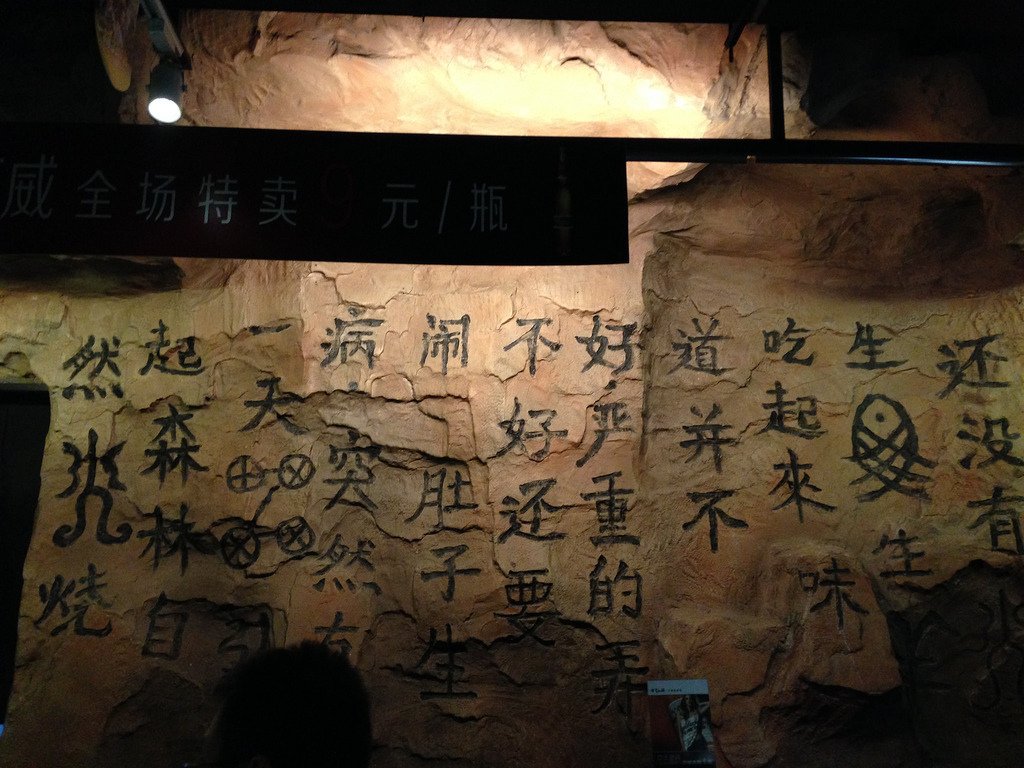 威全场特卖9元/瓶
还没有
生 生
吃起來味
道并不
好,严重的弄
不好还要
闹肚子生
病,突然有
一天 引
起森林自
然 烧